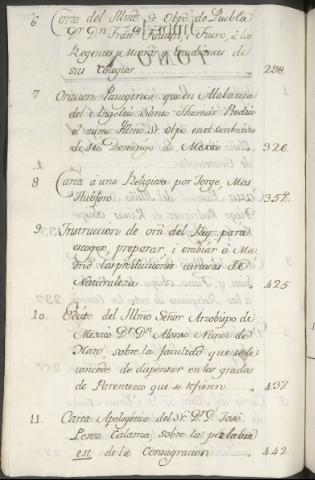 6 Carta del Illmo Sr. Obpo. de Puebla
Dr. Dn. Franco. Fabian, i Fuero, á los
Regentes y Estudiantes de
sus Colegios. 298.
7 Oracion Panegirica que en Alabanza
del Angelico Santo Thomas Predicó
el mismo Illmo Sr. Obpo. en el conbento
de Sto. Domingo de Mexico 326.
8 Carta á una Religiosa por Jorge Mas
Theóforo 357.
9 Instruccion de orn. del Rey para
escoger, preparar, i embiar á Ma-
drid las producciones curiosas de
Naturaleza 425
10. Edto. del Illmo Señor Arzobispo de
Mexico Dr. Dn. Alonso Nuñez de
Haro, sobre la facultad que se le
concede de dispensar en los grados
de Parentesco que se refieren 437.
11. Carta Apologética del Sr. Dr. D. José
Perez Calama, sobre la palabra
est de la Consagracion 442.